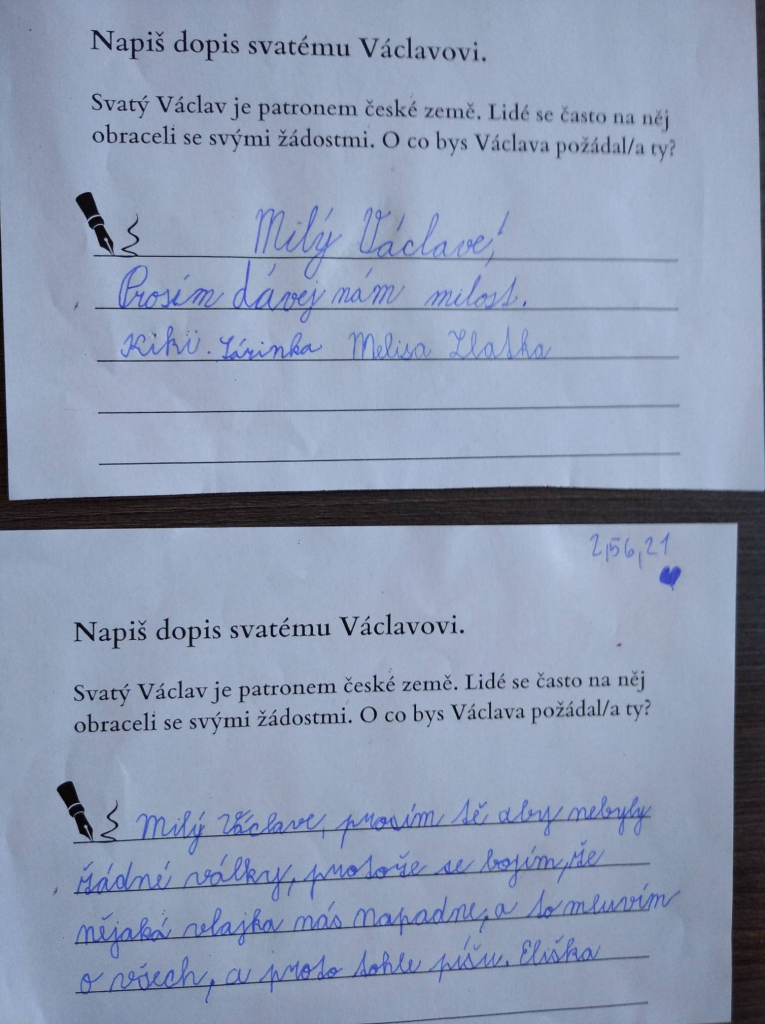 Napiš dopis svatému Václavovi.
Svatý Václav je patronem české země. Lidé se často na něj
obraceli se svými žádostmi. O co bys Václava požádal/a ty?
Milý Václave!
Prosím dávej nám milost.
Kiki. Sárinka Melisa Zlatka
2,56,21
Napiš dopis svatému Václavovi.
Svatý Václav je patronem české země. Lidé se často na něj
obraceli se svými žádostmi. O co bys Václava požádal/a ty?
Milý Václave, prosím tě aby nebyly
žádné války, protože se bojím, že
nějaká vlajka nás napadne, a to mluvím
o všech, a proto tohle píšu. Eliška